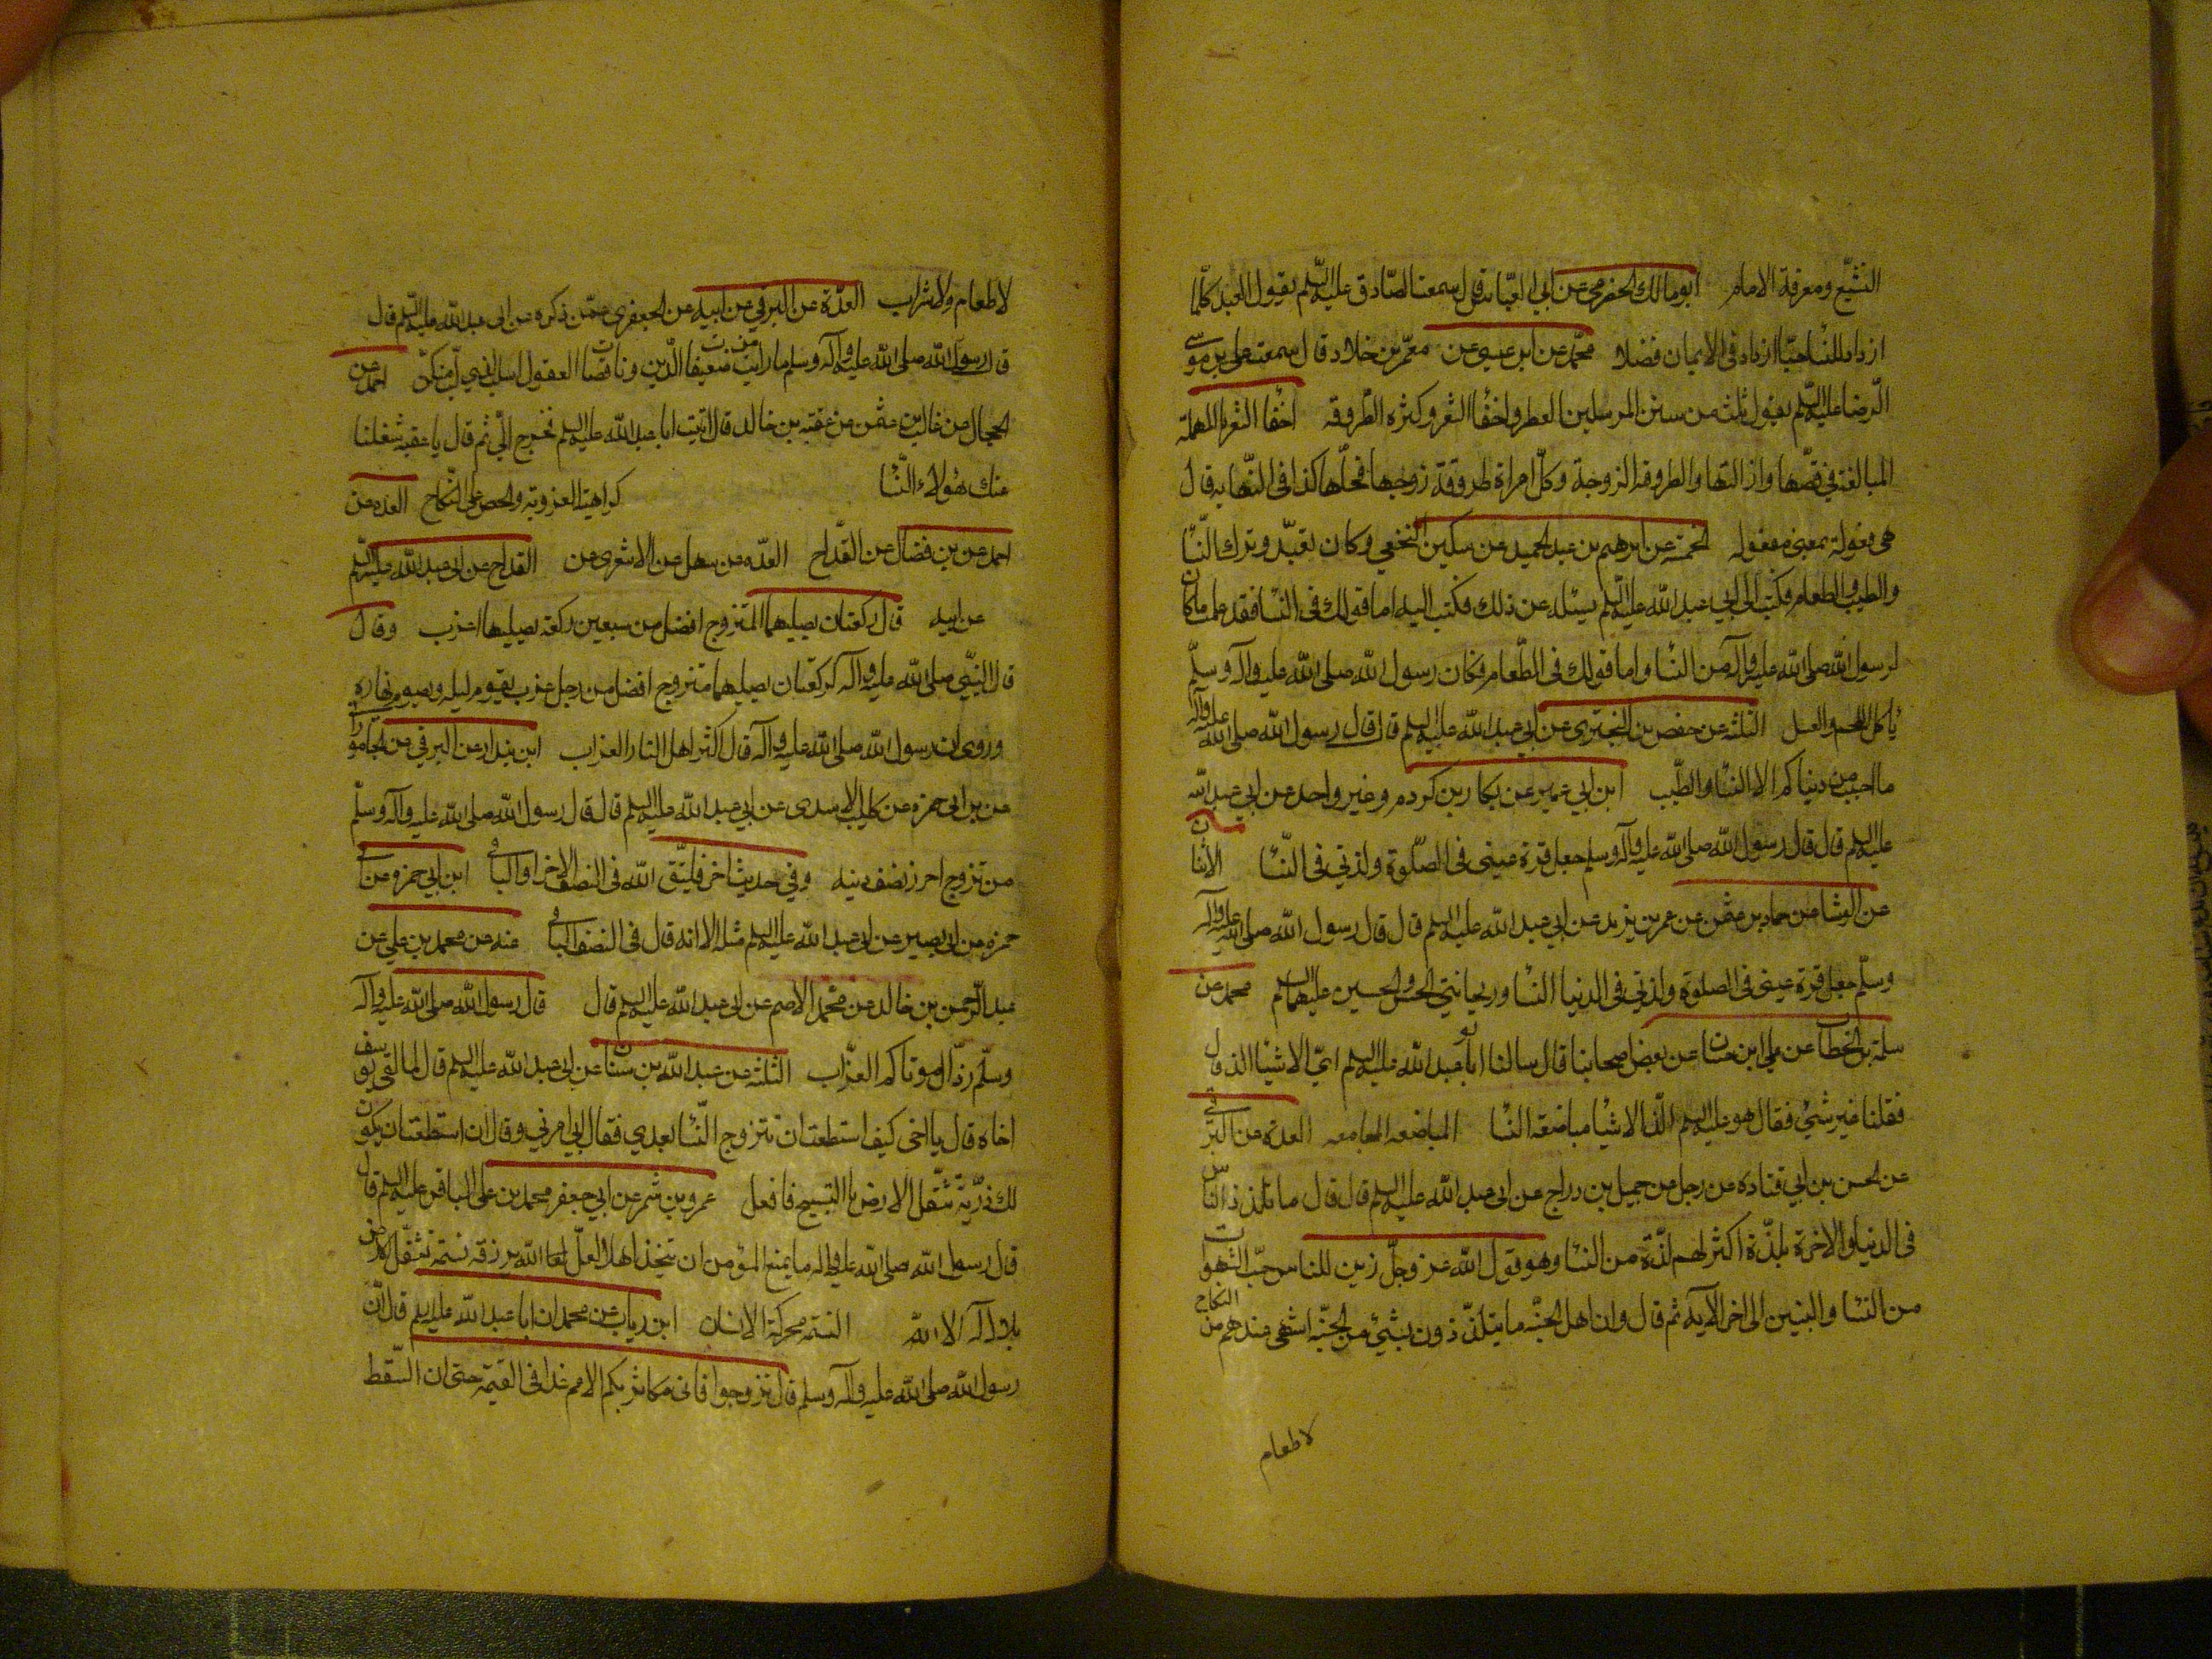 التشيّع ومعرفة الامام ابو مالك الحضرمى عن ابى العبّاس قال سمعت الصّادق عليه السّلم يقول العبد كلّما
ازداد للنسا حبّا ازداد فى الايمان فضلا محمّد عن ابن عيسى عن معمّر بن خلاد قال سمعت على بن موسى
الرضا عليه السلم يقول ثلث من سنن المرسلين العطر واخفا الشعر وكثره الطروقه اخفا الشعر بالمهملة
المبالغة فى قصّها وازالتها والطروقه الزوجة وكلّ امراة طروقة زوجها فحلّها كذا فى النّهايه قال
هى فعولة بمعنى مفعوله الخمسة عن ابرهيم بن عبد الحميد عن سكين النخعى وكان تعبّد وترك النّسا
والطيب والطعام فكتب الى ابى عبد الله عليه السلم يسئله عن ذلك فكتب اليه اما قولك فى النسا فقد علمت ما كان
لرسول الله صلى الله عليه وآله من النسا واما قولك فى الطّعام فكان رسول الله صلى الله عليه وآله وسلّم
يأكل اللحم والعسل الثلثه عن حفص بن البخترى عن ابى عبد الله عليه السلم قال قال رسول الله صلى الله عليه وآله
ما احبّ من دنياكم الا النسا والطّيب ابن ابى عمير عن بكار بن كردم وغير واحد عن ابى عبد الله
عليه السلم قال قال رسول الله صلى الله عليه وآله وسلم جعل قرة عينى فى الصّلوة ولذتى فى النسا الاثنان
عن الوشا عن حماد بن عثمن عن عمر بن يزيد عن ابى عبد الله عليه السلم قال قال رسول الله صلى الله عليه وآله
وسلّم جعل قرة عينى فى الصلوة ولذتى فى الدنيا النسا وريحانتى الحسن والحسين عليهما السلم محمد عن
سلمة بن الخطاب عن على ابن حسان عن بعض اصحابنا قال سالنا ابو عبد الله عليه السلم اىّ الاشيا الذ قال
فقلنا غير شئ فقال هو عليه السلم الذ الاشيا مباضعة النسا المباضعه المجامعه العدة عن البرقى
عن الحسن بن ابى قتاده عن رجل عن جميل بن دراج عن ابى عبد الله عليه السلم قال قال ما تلذذ الناس
فى الدنيا والاخرة بلذّة اكثر لهم لذّة من النسا وهو قول الله عز وجلّ زين للناس حبّ الشهوات
من النسا والبنين الى اخر الآيه ثم قال وان اهل الجنّه ما يتلذّذون بشئ من الجنّه اشهى عندهم من النكاح
لا طعام
لا طعام ولا شراب العدّة عن البرقى عن ابيه عن الجعفرى عمّن ذكره عن ابى عبد الله عليه السلم قال
قال رسول الله صلى الله عليه وآله وسلم ما رايت من ضعيفات الدّين وناقصات العقول اسلب لذى لبّ منكنّ احمد عن
الحجال عن غالب بن عثمن عن عقبه بن خالد قال اتيت ابا عبد الله عليه السلم فخرج الىّ ثم قال يا عقبه شغلنا
عنك هؤلاء النّسا كراهية العزوبه والحص على النّكاح العده عن
احمد عن بن فضال عن القدّاح العدّه عن سهل عن الاشعرى عن القداح عن ابى عبد الله عليه السّلم
عن ابيه قال ركعتان يصليهما المتزوج افضل من سبعين ركعه يصليها اعزب وقال
قال النبّى صلى الله عليه وآله لركعتان يصليهما متزوج افضل من رجل عزب يقوم ليله ويصوم نهاره
وروى ان رسول الله صلى الله عليه وآله قال اكثر اهل النار العزاب ابن بندار عن البرقى عن الجامورانى
عن بن ابى حمزه عن كليب الاسدى عن ابى عبد الله عليه السلم قال قال رسول الله صلى الله عليه وآله وسلّم
من تزوج احرز نصف دينه وفى حديث اخر فليتّق الله فى النصف الاخر او الباقى ابن ابى حمزه عن ابى
حمزه عن ابى بصير عن ابى عبد الله عليه السلم مثله الا انه قال فى النصف الباقى عنه عن محمد بن على عن
عبد الرّحمن بن خالد عن محمّد الاصم عن ابى عبد الله عليه السلم قال قال رسول الله صلى الله عليه وآله
وسلّم رذّال موتاكم العزّاب الثلثه عن عبد الله بن سنان عن ابى عبد الله عليه السلم قال لما لقى يوسف
اخاه قال يا اخى كيف استطعت ان تتزوج النّسا بعدى فقال ابى امرنى وقال ان استطعت ان يكون
لك ذرّيّة تثقل الارض بالتسبيح فافعل عمرو بن شمر عن ابى جعفر محمد بن على الباقر عليه السلم قال
قال رسول الله صلى الله عليه وآله ما يمنع المؤمن ان يتخذ اهلا لعلّ الله يرزقه نسمة تثقل الارض
بلا آله الا الله النسمه محركة الانسان ابن رياب عن محمد ان ابا عبد الله عليه السلم قال انّ
رسول الله صلى الله عليه وآله وسلم قال تزوجوا فانى مكاثر بكم الامم غدا فى القيمه حتى ان السّقط